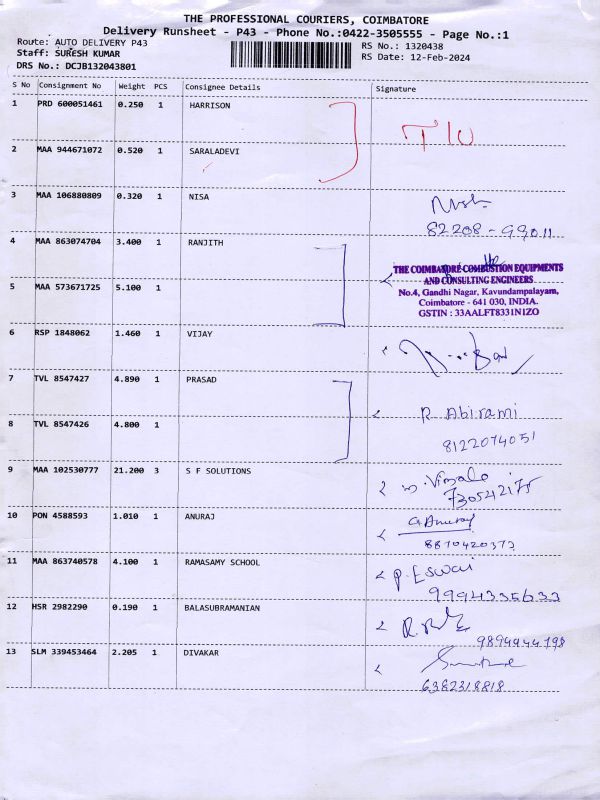 THE PROFESSIONAL COURIERS, COIMBATORE
Delivery Runsheet - P43 - Phone No.:0422-3505555 - Page No.:1
Route: AUTO DELIVERY P43
Staff: SURESH KUMAR
DRS No.: DCJB132043801
RS No.: 1320438
RS Date: 12-Feb-2024
S No Consignment No Weight PCS Consignee Details Signature
1 PRD 600051461 0.250 1 HARRISON
2 MAA 944671072 0.520 1 SARALADEVI
3 MAA 106880809 0.320 1 NISA
82208-99011
4 MAA 863074704 3.400 1 RANJITH
THE COIMBATORE COMBUSTION EQUIPMENTS
AND CONSULTING ENGINEERS
5 MAA 573671725 5.100 1
No.4, Gandhi Nagar, Kavundampalayam,
Coimbatore - 641 030, INDIA.
GSTIN : 33AALFT8331N1ZO
6 RSP 1848062 1.460 1 VIJAY
7 TVL 8547427 4.890 1 PRASAD
R Abirami
8 TVL 8547426 4.800 1
8122074051
9 MAA 102530777 21.200 3 S F SOLUTIONS
10 PON 4588593 1.010 1 ANURAJ
G Anuraj
8870420373
11 MAA 863740578 4.100 1 RAMASAMY SCHOOL
P. Eswai
9994335633
12 HSR 2982290 0.190 1 BALASUBRAMANIAN
9894444798
13 SLM 339453464 2.205 1 DIVAKAR
6382318818